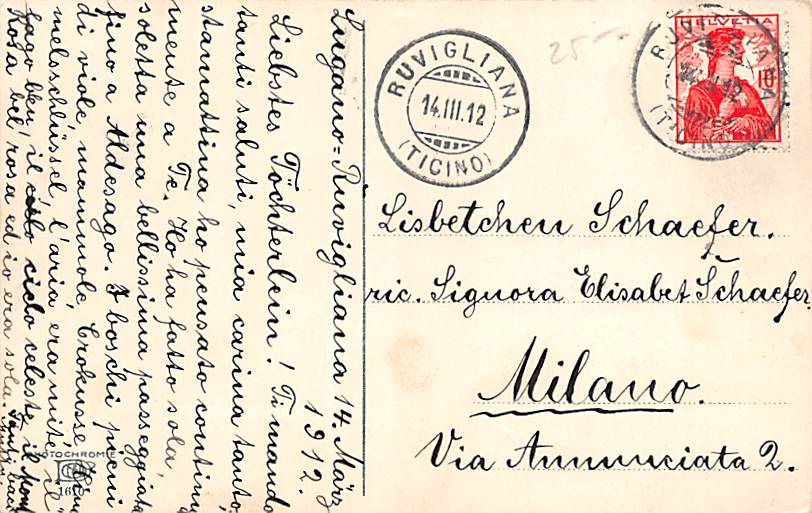 Lugano=Ruvigliana 14. März
1912.
Liebstes Töchterlein! Ti mando
tanti saluti, mia carina tanto.
Stammattina ho pensato continu
mente a Te. Ho ha fatto sola,
soletta una bellissima passeggiata
fino a Aldesago. I boschi pieni
di viole, mammole, Crokusse
melschlüssel, l'aria era mite, il
lago bleu, il cielo celeste, il
Rosa bel rosa ed io era sola.
RUVIGLIANA
14.III.12
(TICINO)
25-
HELVETIA
10
(TICINO)
Lisbetchen Schaefer.
ric. Signora Elisabet Schaefer
Milano.
Via Annunciata 2.
PHOTOCHROMIE